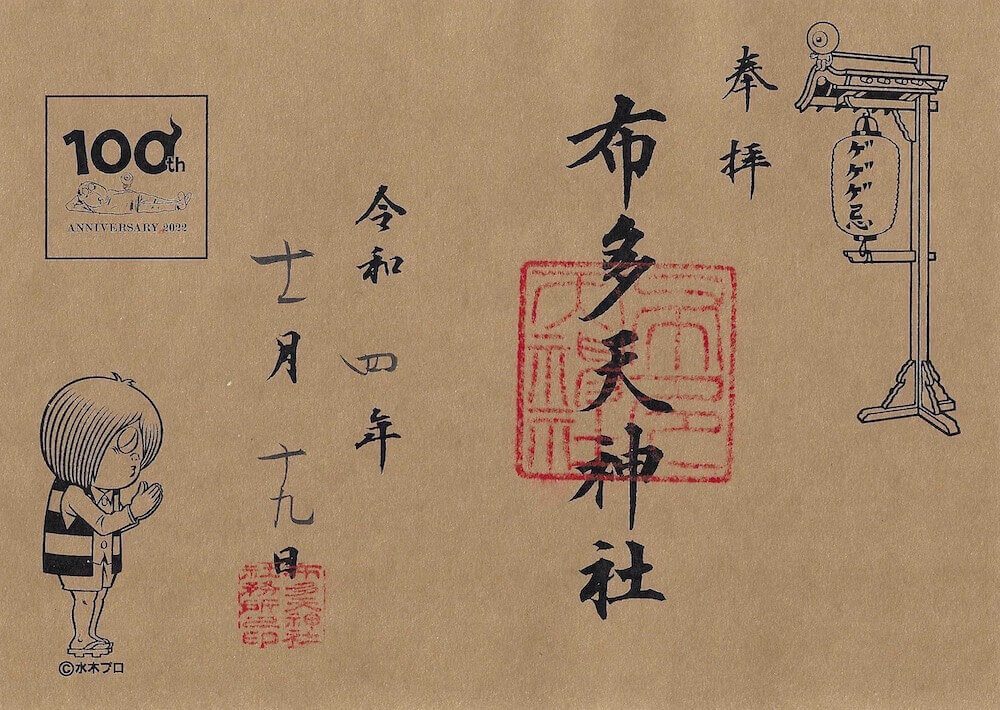 奉拝
ゲゲゲ忌
布多天神社
布多
天神社
令和四年
十一月十九日
布多天神社
社務所之印
100th
ANNIVERSARY 2022
©水木プロ